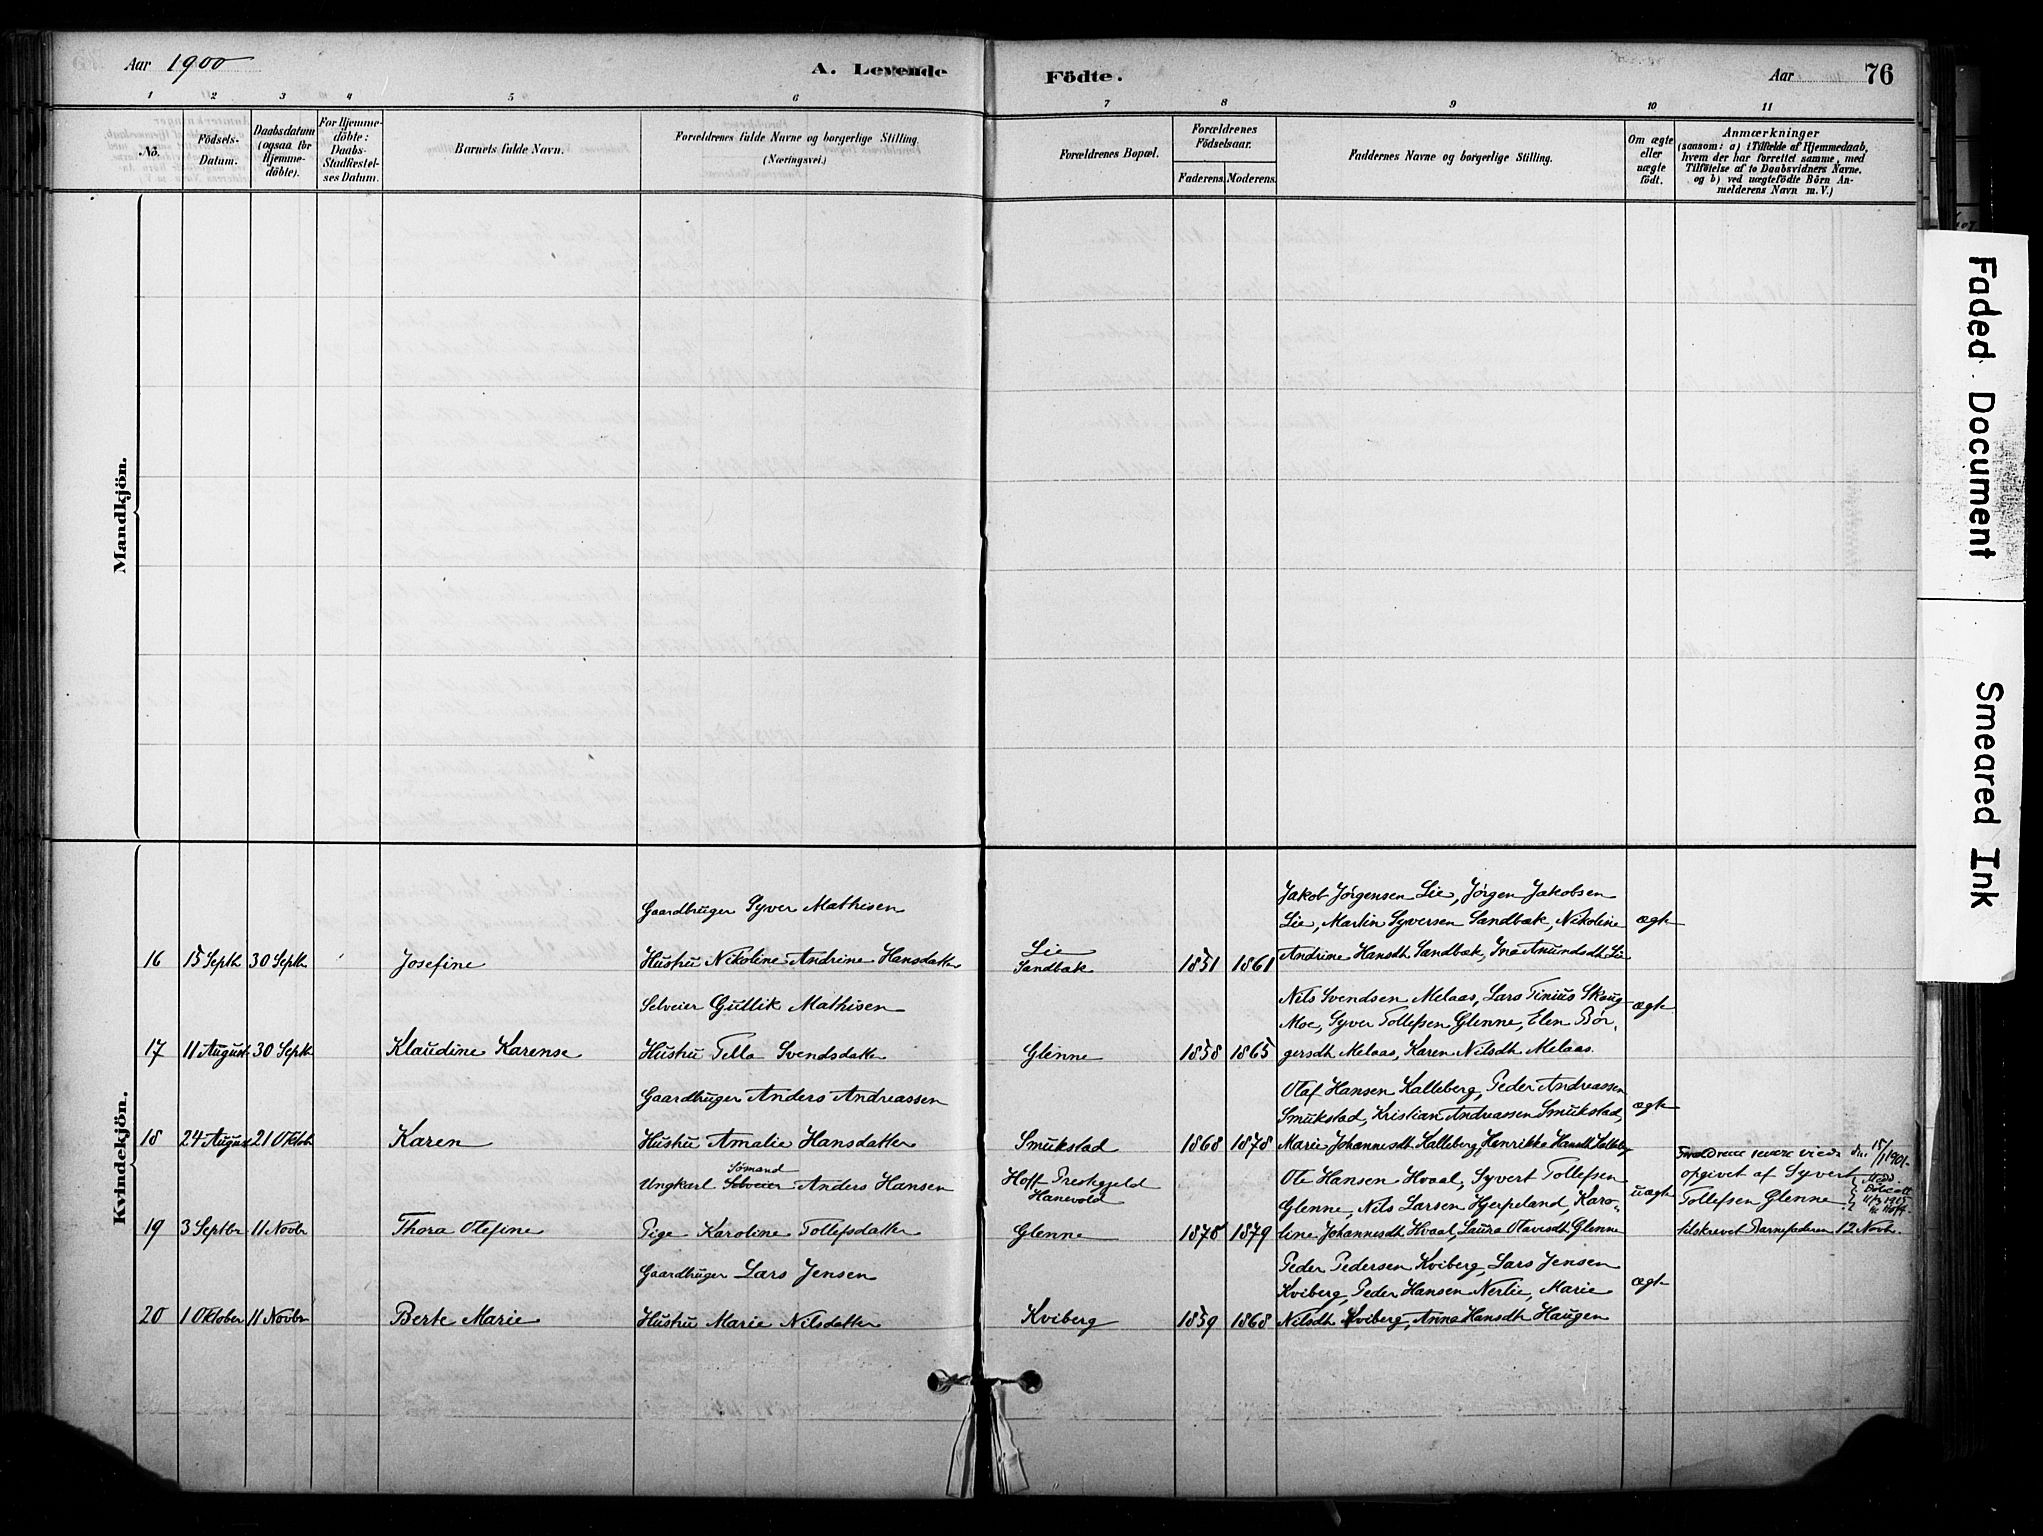 Aar 1900
A. Levende Födte.
Aar 76
1 2 3 4 5 6 7 8 9 10 11
No.
Födsels-Datum.
Daabsdatum (ogsaa for Hjemmedöbte).
For Hjemmedöbte: Daabs-Stadfæstelses Datum.
Barnets fulde Navn.
Forældrenes fulde Navne og borgerlige Stilling.
(Næringsvei.)
Forældrenes Bopæl.
Forældrenes Födselsaar.
Faderens. Moderens.
Faddernes Navne og borgerlige Stilling.
Om ægte eller uægte födt.
Anmærkninger
(saasom: a) i Tilfælde af Hjemmedaab,
hvem der har forrettet samme, med
Tilföielse af to Daabsvidners Navne.
og b) ved uægtefödte Börn An-
melderens Navn m. V.)
Mandkjön.
Kvindekjön.
Gaardbruger Syver Mathisen
Jakob Jörgensen Lie, Jörgen Jakobsen
Lie, Martin Syversen Sandbæk, Nikoline ægte
16 15 Septb 30 Septb Josefine Hustru Nikoline Andrine Hansdatter Lie Sandbæk 1851 1861 Andrine Hansdtr Sandbæk, Ina Amundsdtr Lie
Selveier Gullik Mathisen
Nils Svendsen Melaas, Lars Tinius Skoug
Moe, Syver Tollefsen Glenne, Elen Bör- ægte
17 11 August 30 Septb Klaudine Karense Hustru Tella Svendsdatter Glenne 1858 1865 gersdtr Melaas, Karen Nilsdtr Melaas.
Gaardbruger Anders Andreassen
Olaf Hansen Kalleberg, Peder Andreassen
Smukstad, Kristian Andreassen Smukstad, ægte
18 24 August 21 Oktob Karen Hustru Amalie Hansdatter Smukstad 1868 1878 Marie Johannesdtr Kalleberg, Henrikke Hansdtr Kalleberg
Ungkarl Selveier Sømand Anders Hansen Hoff Prestegjeld Hanevold
Ole Hansen Hvaal, Syvert Tollefsen
Glenne, Nils Larsen Hjerpeland, Karo- uægte
19 3 Septbr 11 Novbr Thora Olefine Pige Karoline Tollefsdatter Glenne 1878 1879 line Johannesdtr Hvaal, Laura Olavesdtr Glenne
Forældrene senere viede den 15/1 1901.
opgivet af Syvert
Tollefsen Glenne
tilskrevet Barnefaderen 12 Novb.
Gaardbruger Lars Jensen
Peder Pedersen Kviberg, Lars Jensen
Kviberg, Peder Hansen Nerlie, Marie ægte
20 1 Oktober 11 Novbr Berte Marie Hustru Marie Nilsdatter Kviberg 1859 1868 Nilsdtr Kviberg, Anna Hansdtr Haugen
Faded Document
Smeared Ink